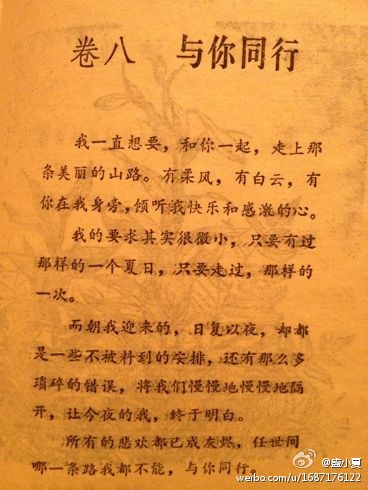 卷八 与你同行
我一直想要，和你一起，走上那
条美丽的山路。有柔风，有白云，有
你在我身旁，倾听我快乐和感激的心。
我的要求其实很微小，只要有过
那样的一个夏日，只要走过，那样的
一次。
而朝我迎来的，日复以夜，却都
是一些不被料到的安排，还有那么多
琐碎的错误，将我们慢慢地慢慢地隔
开，让今夜的我，终于明白。
所有的悲欢都已成灰烬，任世间
哪一条路我都不能，与你同行。
@盛小夏
weibo.com/u/1687176122